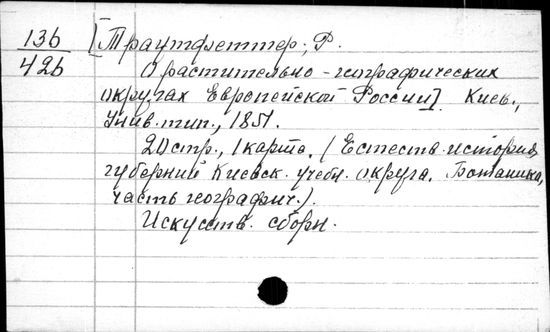 136
426
[Траутфеттер, Р.
О растительно-географических
округах Европейской России]. Киев.,
Унив. тип., 1851.
20 стр., 1 карта. (Естеств. история
губерний Киевск. учебн. округа. Ботаника,
часть географич.).
Искусств. сборн.